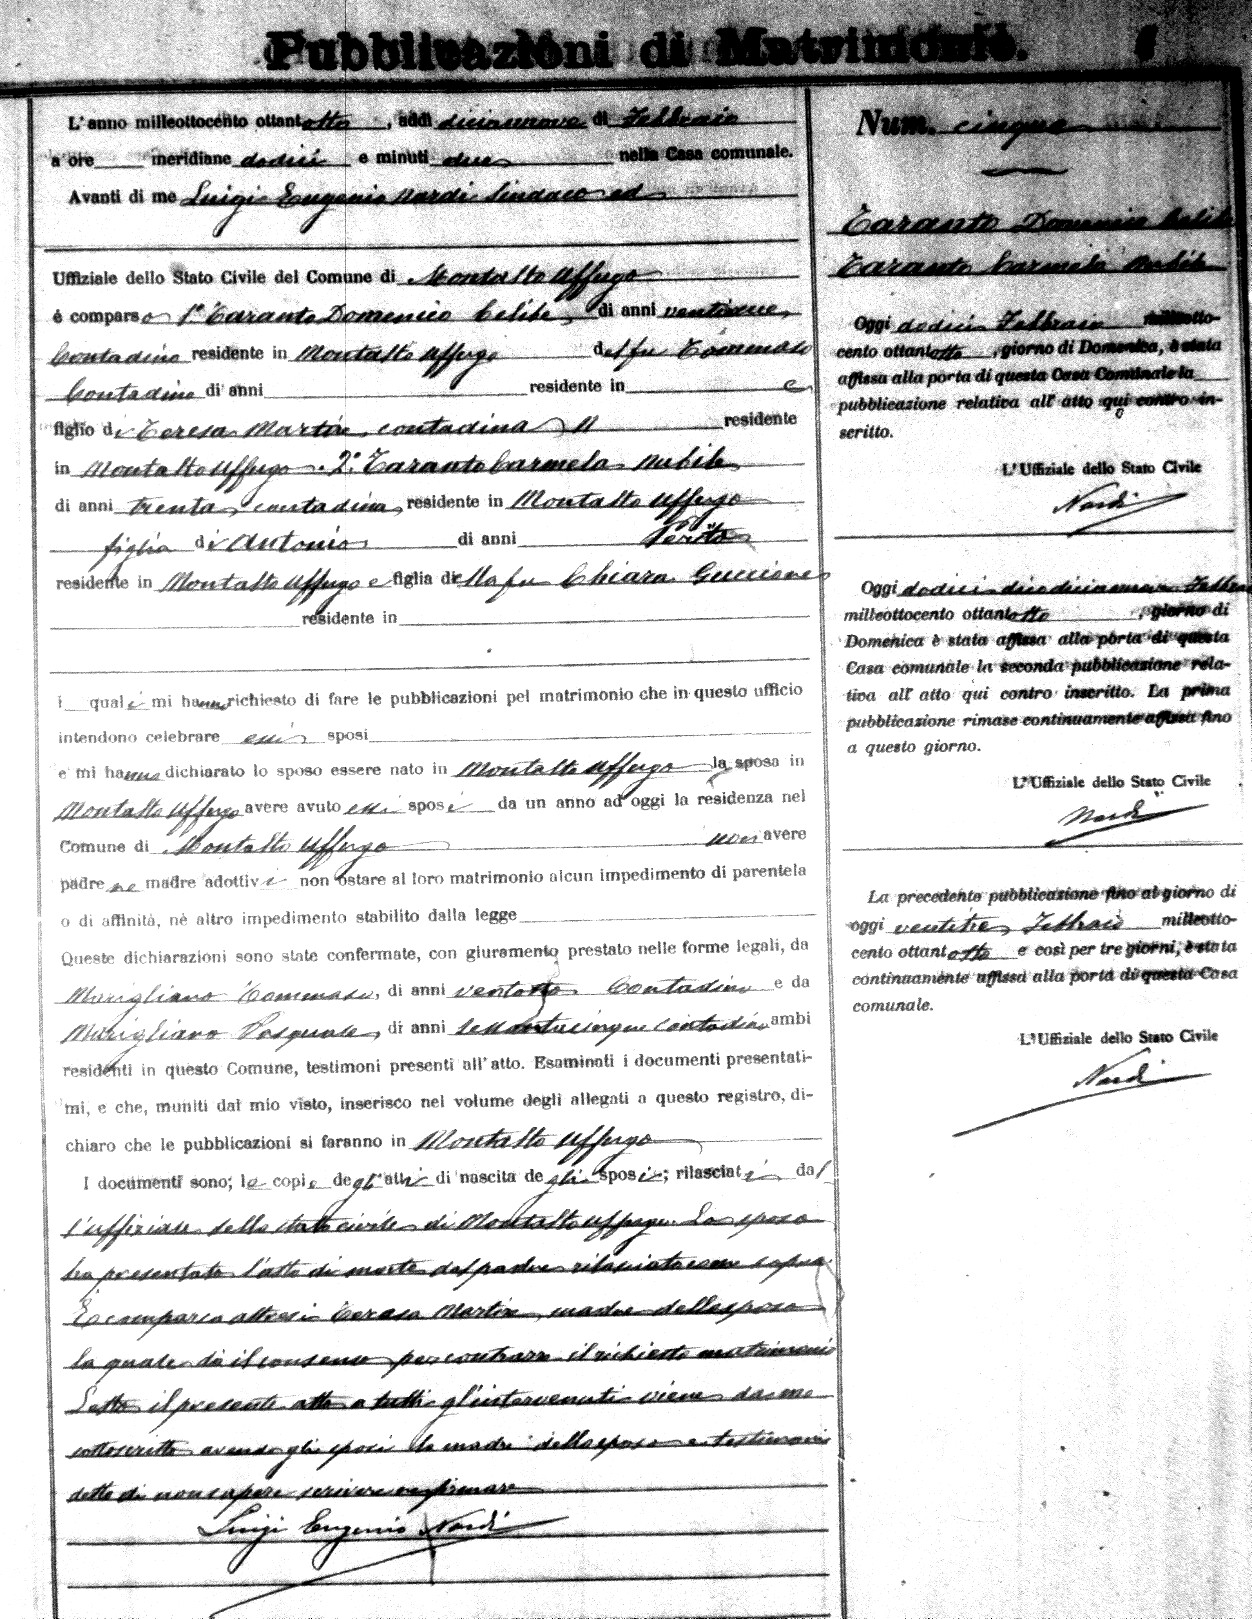 Pubblicazioni di Matrimonio.
L'anno milleottocento ottantotto, addì diciannove di Febbraio
a ore meridiane dodici e minuti due nella Casa comunale.
Avanti di me Luigi Eugenio Nardi Sindaco ed
Uffiziale dello Stato Civile del Comune di Montalto Uffugo
è comparso 1º Taranto Domenico Celibe, di anni
Contadino residente in Montalto Uffugo del fu Tommaso
Contadino di anni residente in e
figlio di Teresa Martire contadina residente
in Montalto Uffugo. 2º Taranto Carmela Nubile
di anni trenta, contadina, residente in Montalto Uffugo
figlia di Antonio di anni
residente in Montalto Uffugo e figlia della fu Chiara Guccione
residente in
i quali mi hanno richiesto di fare le pubblicazioni pel matrimonio che in questo ufficio
intendono celebrare essi sposi
e mi hanno dichiarato lo sposo essere nato in Montalto Uffugo la sposa in
Montalto Uffugo avere avuto essi sposi da un anno ad oggi la residenza nel
Comune di Montalto Uffugo non avere
padre ne madre adottivi non ostare al loro matrimonio alcun impedimento di parentela
o di affinità, nè altro impedimento stabilito dalla legge
Queste dichiarazioni sono state confermate, con giuramento prestato nelle forme legali, da
Marigliano Tommaso, di anni ventotto Contadino e da
Marigliano Pasquale, di anni sessantacinque contadino ambi
residenti in questo Comune, testimoni presenti all'atto. Esaminati i documenti presentati-
mi, e che, muniti dal mio visto, inserisco nel volume degli allegati a questo registro, di-
chiaro che le pubblicazioni si faranno in Montalto Uffugo
I documenti sono; le copie degl'atti di nascita degli sposi; rilasciati dal
l'uffiziale dello stato civile di Montalto Uffugo. Lo sposo
ha presentato l'atto di morte del padre rilasciato come sopra.
È comparsa altresì Teresa Martire, madre dello sposo
la quale dà il consenso per contrarre il richiesto matrimonio
Letto il presente atto a tutti gl'intervenuti viene da me
sottoscritto avendo gli sposi la madre dello sposo e testimoni
detto di non sapere scrivere
Luigi Eugenio Nardi
Num. cinque
Taranto Domenico Celibe
Taranto Carmela Nubile
Oggi dodici Febbraio milleotto-
cento ottantotto, giorno di Domenica, è stata
affissa alla porta di questa Casa Comunale la
pubblicazione relativa all'atto qui contro in-
scritto.
L'Uffiziale dello Stato Civile
Nardi
Oggi diciannove Febbraio
milleottocento ottantotto, giorno di
Domenica è stata affissa alla porta di questa
Casa comunale la seconda pubblicazione rela-
tiva all'atto qui contro inscritto. La prima
pubblicazione rimase continuamente affissa fino
a questo giorno.
L'Uffiziale dello Stato Civile
Nardi
La precedente pubblicazione fino al giorno di
oggi ventitre Febbraio milleotto-
cento ottantotto e così per tre giorni, è stata
continuamente affissa alla porta di questa Casa
comunale.
L'Uffiziale dello Stato Civile
Nardi